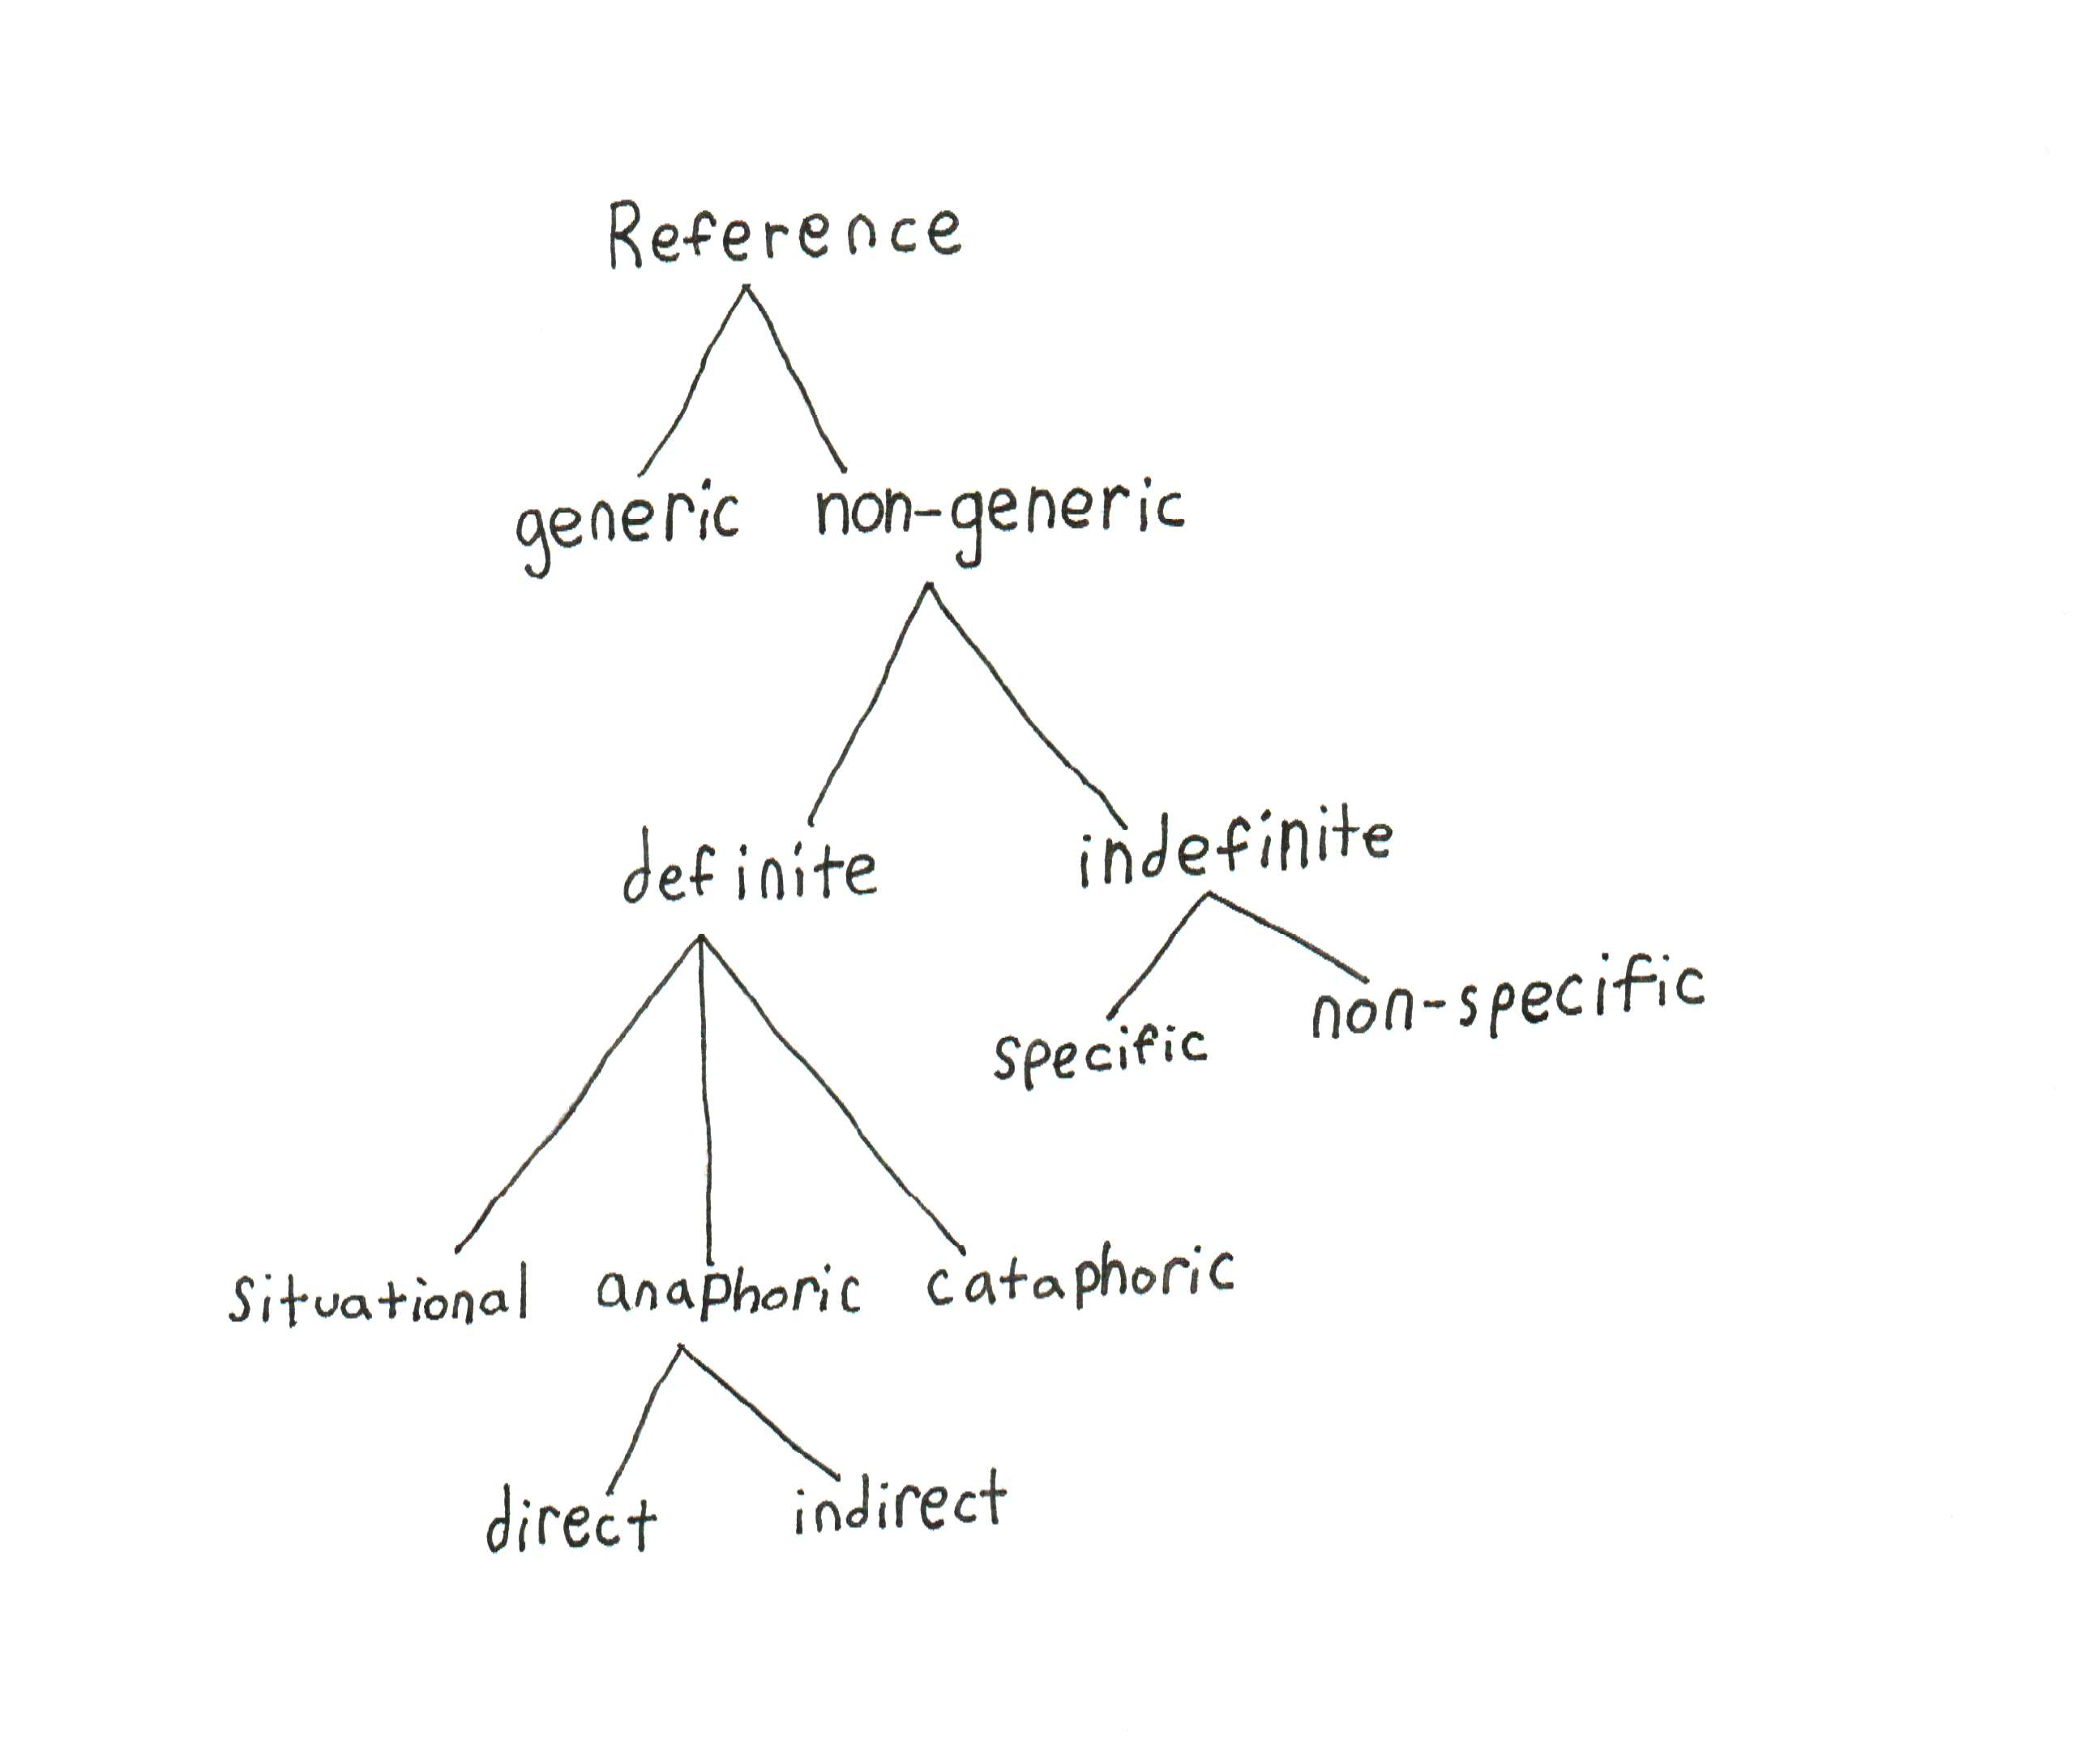 Reference
generic non-generic
definite indefinite
specific non-specific
situational anaphoric cataphoric
direct indirect